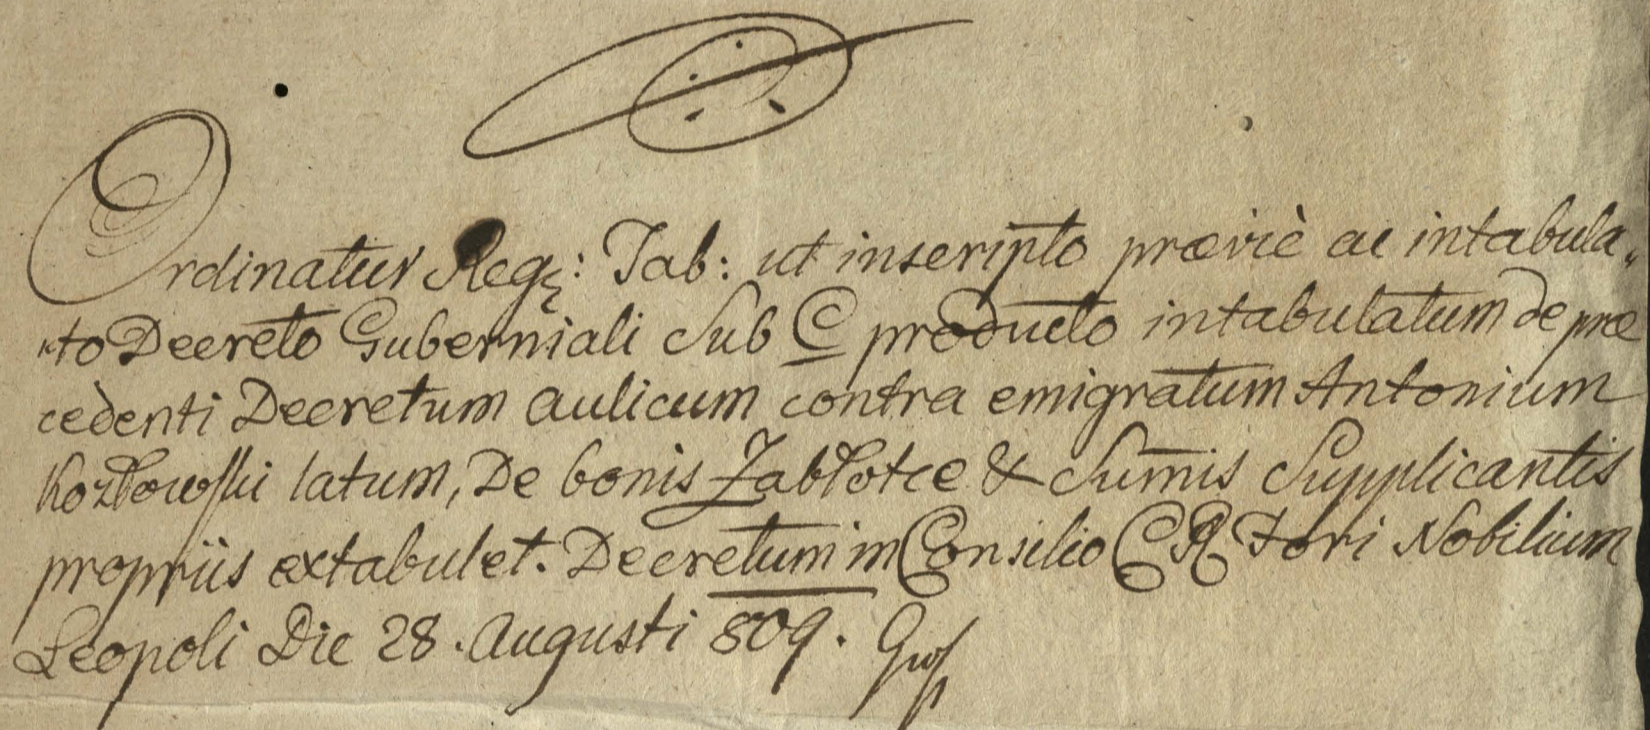 Ordinatur Regę: Tab: ut inscripto præviè ac intabula„
„to Decreto Guberniali Sub C producto intabulatum de præ
cedenti Decretum aulicum contra emigratum Antonium
Kozłowski latum, De bonis Zabłotce & Sum̄is Supplicantis
propriis extabulet. Decretum in Consilio C R Fori Nobilium
Leopoli Die 28. Augusti 809.